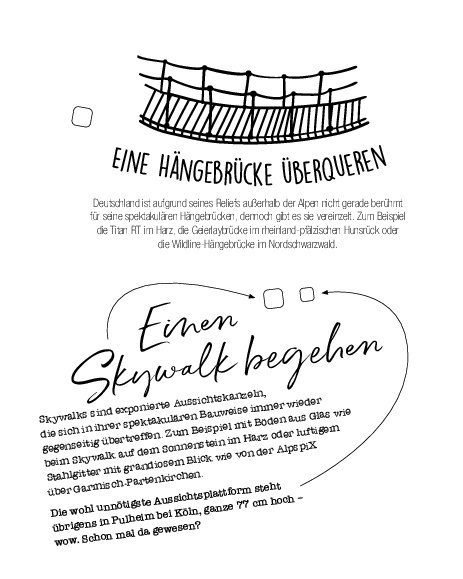 EINE HÄNGEBRÜCKE ÜBERQUEREN
Deutschland ist aufgrund seines Reliefs außerhalb der Alpen nicht gerade berühmt
für seine spektakulären Hängebrücken, dennoch gibt es sie vereinzelt. Zum Beispiel
die Titan RT im Harz, die Geierlaybrücke im rheinland-pfälzischen Hunsrück oder
die Wildline-Hängebrücke im Nordschwarzwald.
Einen
Skywalk begehen
Skywalks sind exponierte Aussichtskanzeln,
die sich in ihrer spektakulären Bauweise immer wieder
gegenseitig übertreffen. Zum Beispiel mit Böden aus Glas wie
beim Skywalk auf dem Sonnenstein im Harz oder luftigem
Stahlgitter mit grandiosem Blick wie von der AlpspiX
über Garmisch-Partenkirchen.
Die wohl unnötigste Aussichtsplattform steht
übrigens in Pulheim bei Köln, ganze 77 cm hoch –
wow. Schon mal da gewesen?